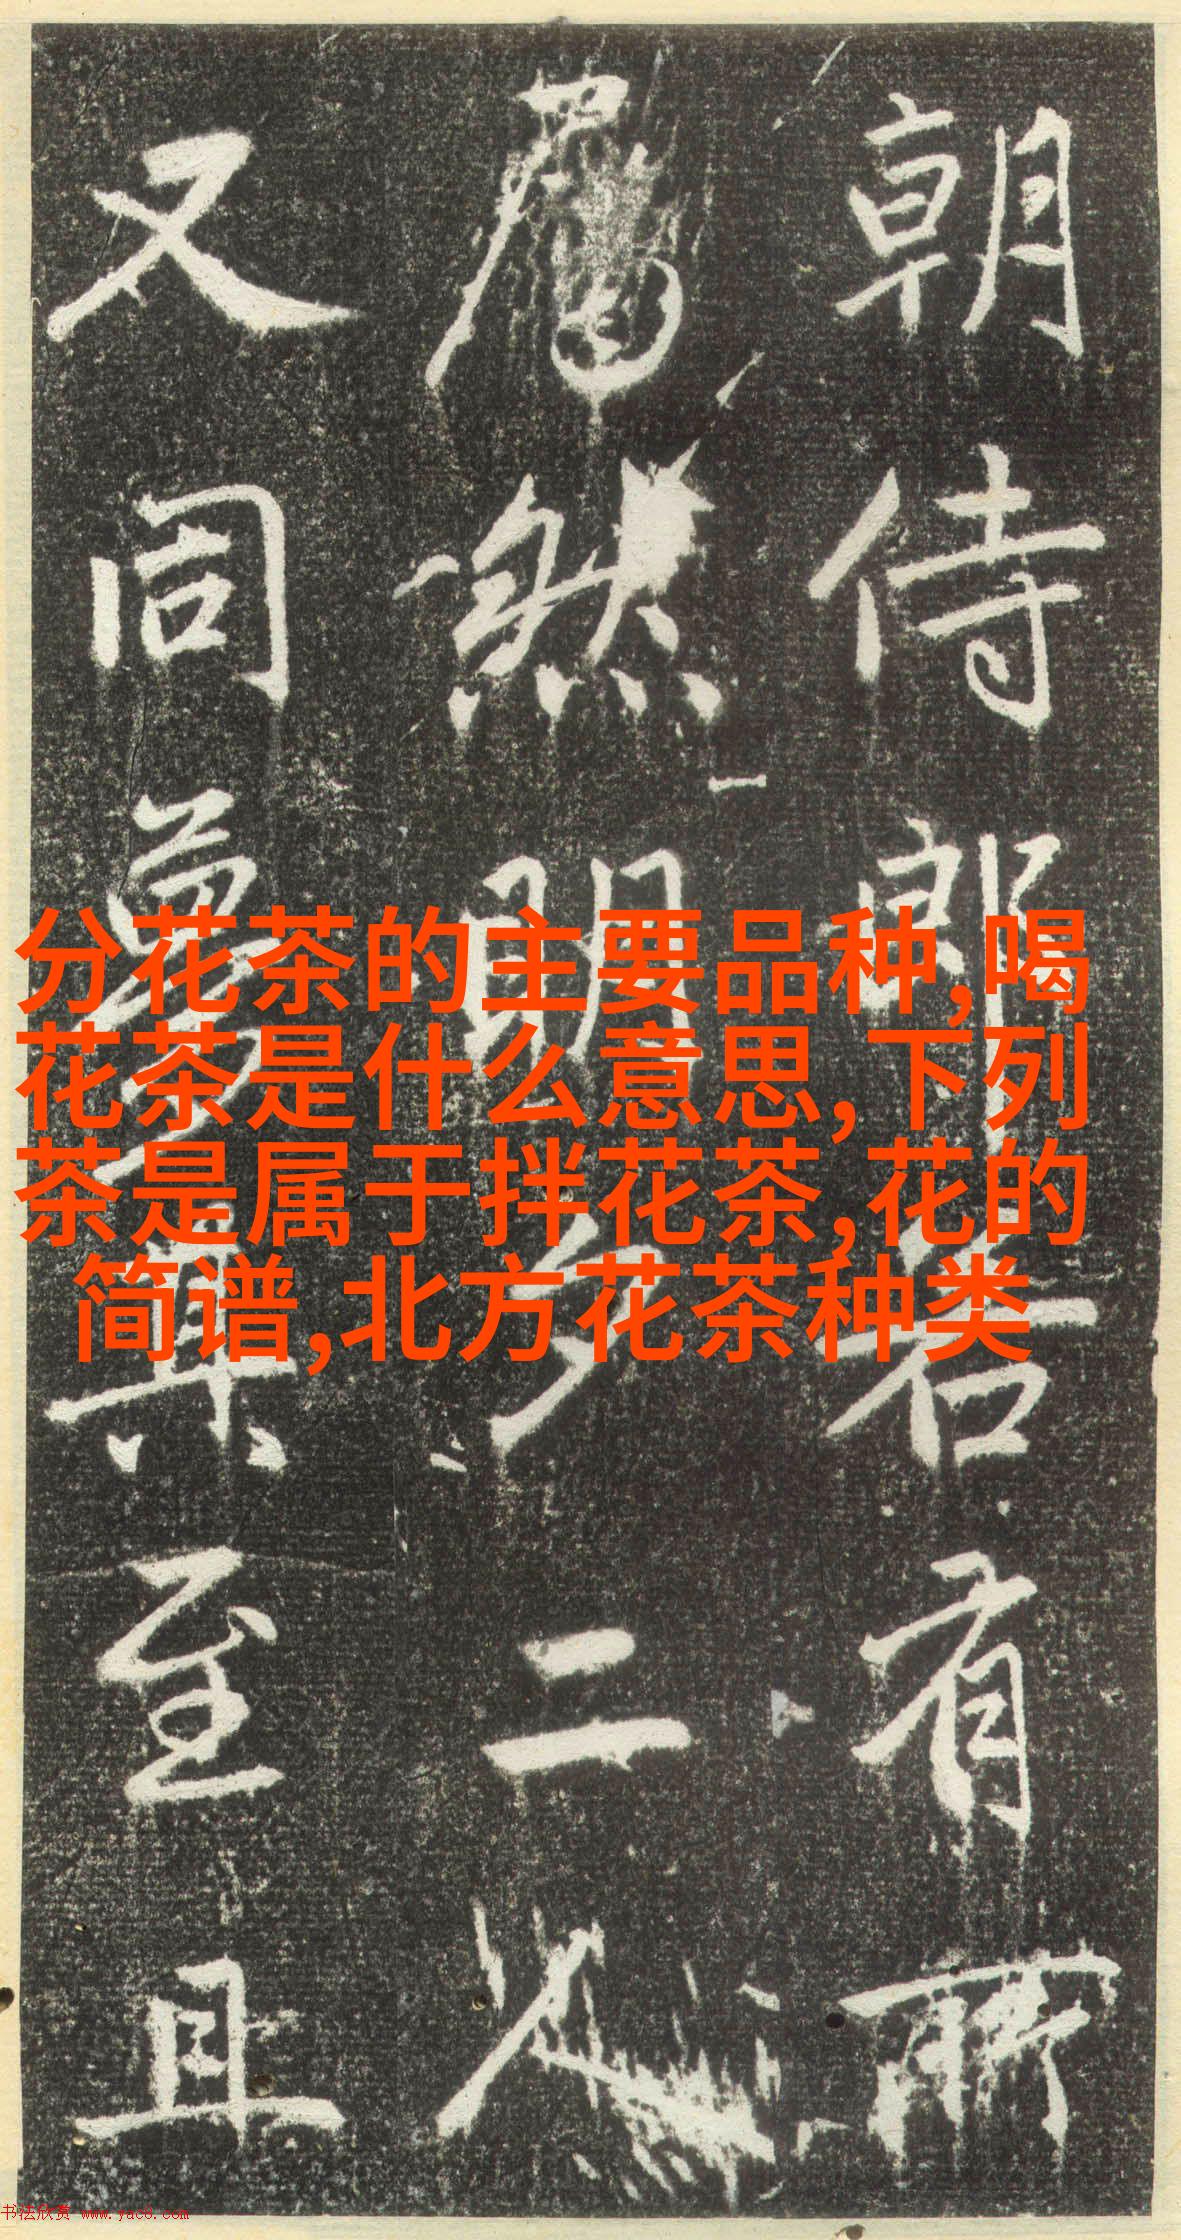 朝侍郎若有所
然明方二人
又同夢某至且
分花茶的主要品种,喝
花茶是什么意思,下列
茶是属于拌花茶,花的
简谱,北方花茶种类
书法欣赏 www.yac8.com